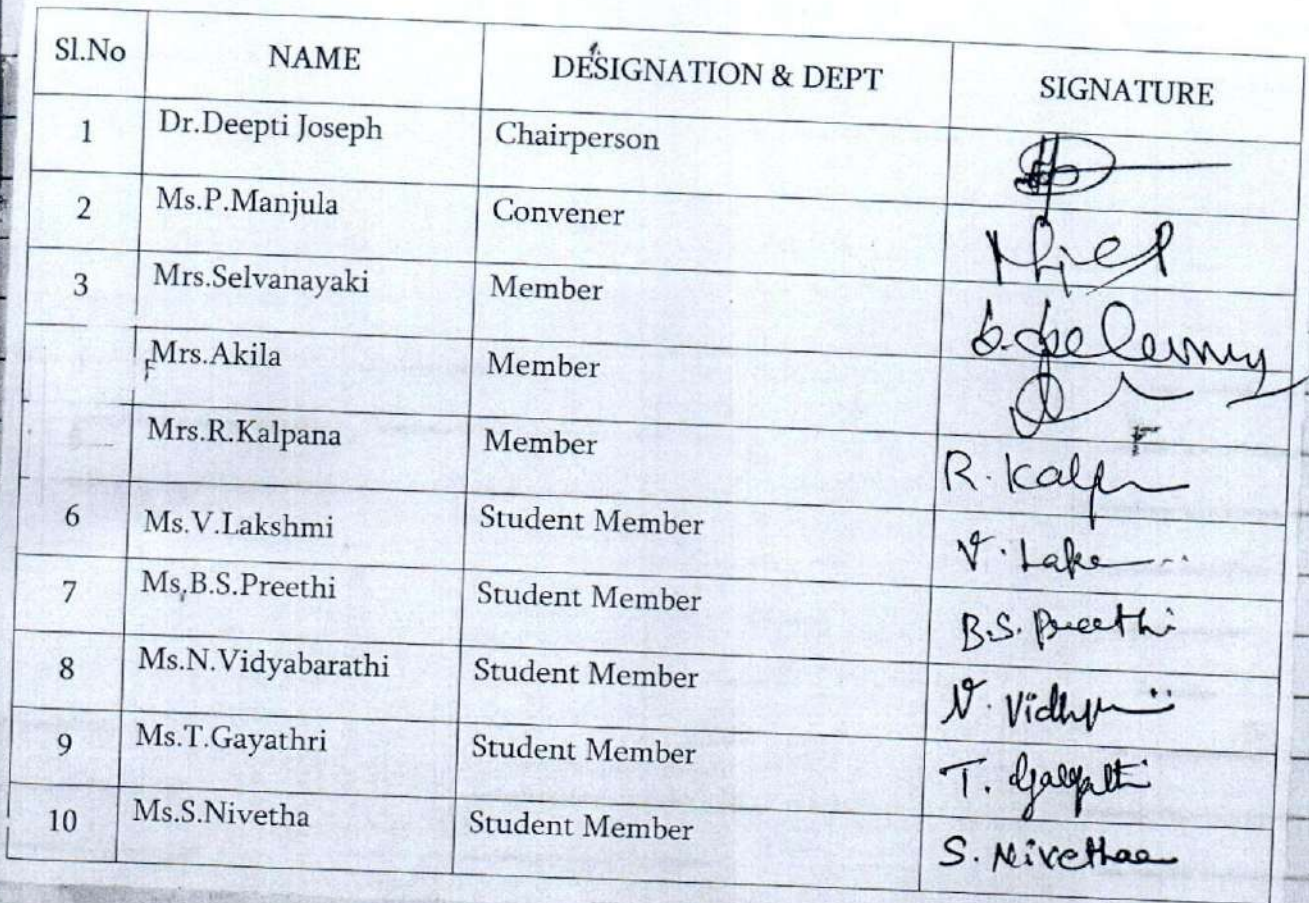 Sl.No NAME DESIGNATION & DEPT SIGNATURE
1 Dr.Deepti Joseph Chairperson
2 Ms.P.Manjula Convener
3 Mrs.Selvanayaki Member
Mrs.Akila Member
Mrs.R.Kalpana Member R. Kalp
6 Ms.V.Lakshmi Student Member V. Lak
7 Ms.B.S.Preethi Student Member B.S. Preethi
8 Ms.N.Vidyabarathi Student Member N. Vidhy
9 Ms.T.Gayathri Student Member T.
10 Ms.S.Nivetha Student Member S. Nivethaa